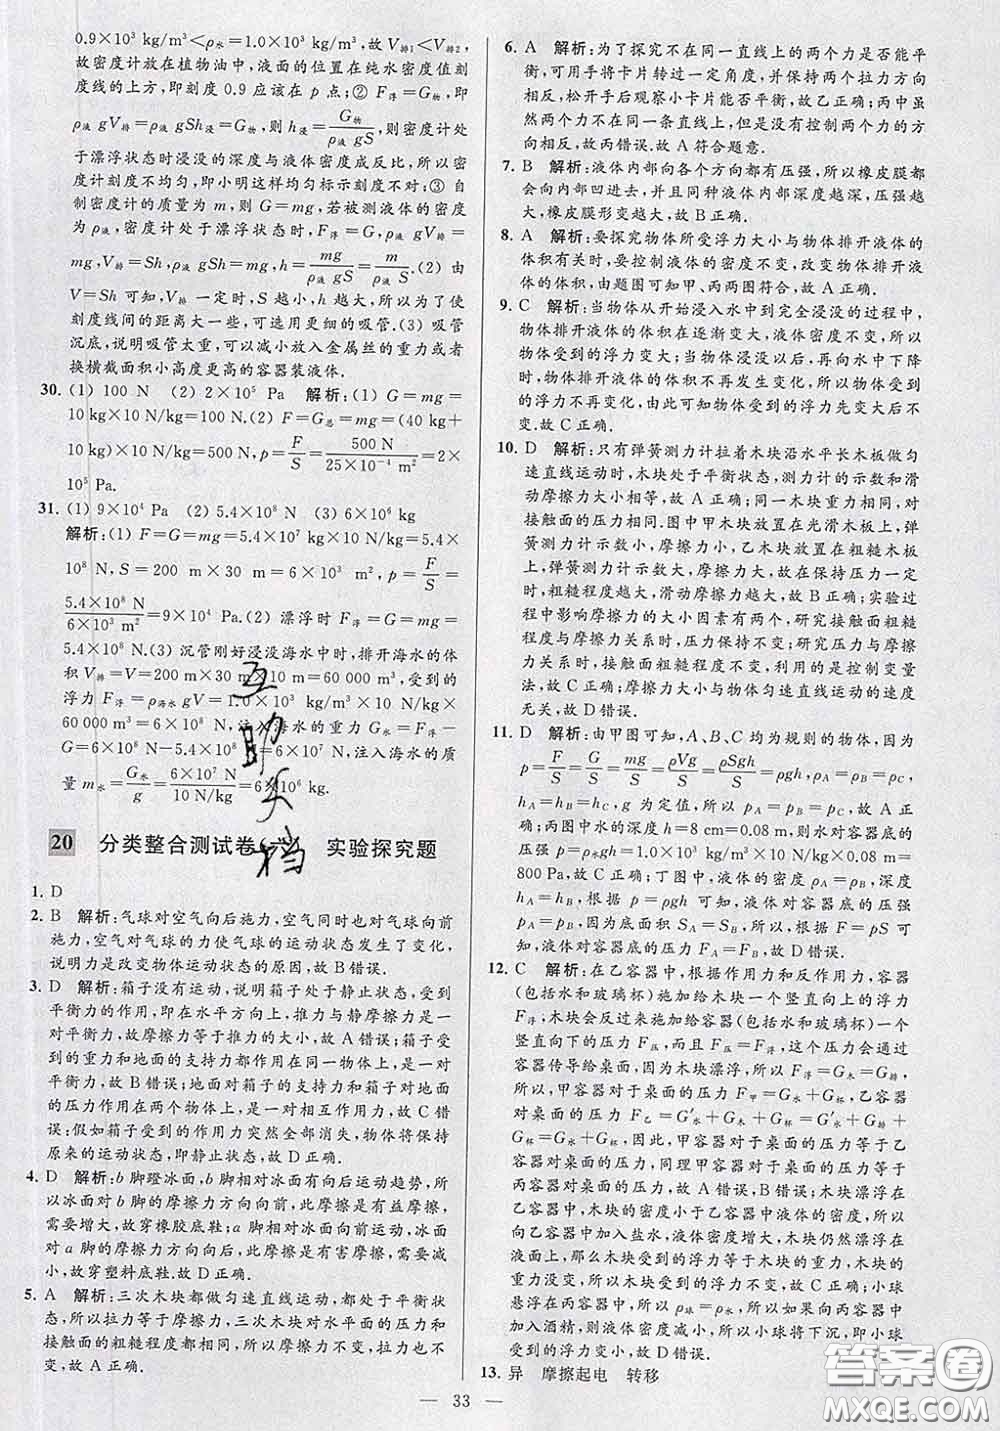 0.9×10³ kg/m³<ρ水=1.0×10³ kg/m³,故 V排1<V排2,
故密度计放在植物油中,液面的位置在纯水密度值刻
度线的上方,即刻度 0.9 应该在 p 点;② F浮=G物,即
ρ液 gV排=ρ液 gSh浸=G物,则 h浸=G物/(ρ液 gS),则密度计处
于漂浮状态时浸没的深度与液体密度成反比,所以密
度计刻度不均匀,即小明这样均匀标示刻度不对;③ 自
制密度计的质量为 m,则 G=mg,若被测液体的密度
为 ρ液,密度计处于漂浮状态时,F浮=G,ρ液 gV排=
mg,V排=Sh,ρ液 gSh=mg,h=mg/(ρ液 gS)=m/(ρ液 S).(2) 由
V=Sh 可知,V排 一定时,S 越小,h 越大,所以为了使
刻度线间的距离大一些,可选用更细的吸管.(3) 吸管
沉底,说明吸管太重,可以减小放入金属丝的重力或者
换横截面积小高度更高的容器装液体.
30. (1) 100 N (2) 2×10⁵ Pa 解析:(1) G=mg=
10 kg×10 N/kg=100 N.(2) F=G总=mg=(40 kg+
10 kg)×10 N/kg=500 N,p=F/S=500 N/(25×10⁻⁴ m²)=2×
10⁵ Pa.
31. (1) 9×10⁴ Pa (2) 5.4×10⁸ N (3) 6×10⁶ kg
解析:(1) F=G=mg=5.4×10⁷ kg×10 N/kg=5.4×
10⁸ N,S=200 m×30 m=6×10³ m²,p=F/S=
5.4×10⁸ N/(6×10³ m²)=9×10⁴ Pa.(2) 漂浮时 F浮=G=mg=
5.4×10⁸ N.(3) 沉管刚好浸没海水中时,排开海水的体
积 V排=V=200 m×30 m×10 m=60 000 m³,受到的
浮力 F浮=ρ海水 gV=1.0×10³ kg/m³×10 N/kg×
60 000 m³=6×10⁸ N,注入海水的重力 G水=F浮-
G=6×10⁸ N-5.4×10⁸ N=6×10⁷ N,注入海水的质
量 m水=G水/g=6×10⁷ N/(10 N/kg)=6×10⁶ kg.
20 分类整合测试卷(六) 实验探究题
1. D
2. B 解析:气球对空气向后施力,空气同时也对气球向前
施力,空气对气球的力使气球的运动状态发生了变化,
说明力是改变物体运动状态的原因,故 B 错误.
3. D 解析:箱子没有运动,说明箱子处于静止状态,受到
平衡力的作用,即在水平方向上,推力与静摩擦力是一
对平衡力,故摩擦力等于推力的大小,故 A 错误;箱子
受到的重力和地面的支持力都作用在同一物体上,是一对
平衡力,故 B 错误;地面对箱子的支持力和箱子对地面
的压力作用在两个物体上,是一对相互作用力,故 C 错
误;假如箱子受到的作用力突然全部消失,物体将保持
原来的运动状态,即静止状态,故 D 正确.
4. D 解析:b 脚蹬冰面,b 脚相对冰面有向后运动趋势,所
以冰面对 b 脚的摩擦力方向向前,此摩擦是有益摩擦,
需要增大,故穿橡胶底鞋;a 脚相对冰面向前运动,冰面
对 a 脚的摩擦力方向向后,此摩擦是有害摩擦,需要减
小,故穿塑料底鞋.故 D 正确.
5. A 解析:三次木块都做匀速直线运动,都处于平衡状
态,所以拉力等于摩擦力,三次木块对水平面的压力和
接触面的粗糙程度都相同,所以摩擦力不变,拉力也不
变,故 A 正确.
6. A 解析:为了探究不在同一直线上的两个力是否能平
衡,可用手将卡片转过一定角度,并保持两个拉力方向
相反,松开手后观察小卡片能否平衡,故乙正确;丙中虽
然两个力不在同一条直线上,但是没有控制两个力的方
向相反,故丙错误.故 A 符合题意.
7. B 解析:液体内部向各个方向都有压强,所以橡皮膜都
会向内部凹进去,并且同种液体内部深度越深,压强越
大,橡皮膜形变越大,故 B 正确.
8. A 解析:要探究物体所受浮力大小与物体排开液体的
体积有关时,要控制液体的密度不变,改变物体排开液
体的体积,由题图可知甲、丙两图符合,故 A 正确.
9. C 解析:当物体从开始浸入水中到完全浸没的过程中,
物体排开液体的体积在逐渐变大,液体密度不变,所以
物体受到的浮力变大;当物体浸没以后,再向水中下降
时,物体排开液体的体积不再发生变化,所以物体受到
的浮力不再变化,由此可知物体受到的浮力先变大后不
变.故 C 正确.
10. D 解析:只有弹簧测力计拉着木块沿水平长木板做匀
速直线运动时,木块处于平衡状态,测力计的示数和滑
动摩擦力大小相等,故 A 正确;同一木块重力相同,对
接触面的压力相同.图中甲木块放置在光滑木板上,弹
簧测力计示数小,摩擦力小,乙木块放置在粗糙木板
上,弹簧测力计示数大,摩擦力大,故在保持压力一定
时,粗糙程度越大,滑动摩擦力越大,故 B 正确;实验过
程中影响摩擦力的大小因素有两个,研究接触面粗糙
程度与摩擦力关系时,压力保持不变;研究压力与摩擦
力关系时,接触面粗糙程度不变,利用的是控制变量
法,故 C 正确;滑动摩擦力大小与物体匀速直线运动的速度
无关,故 D 错误.
11. D 解析:由甲图可知,A、B、C 均为规则的物体,因为
p=F/S=G/S=mg/S=ρVg/S=ρSgh/S=ρgh,ρA=ρB=ρC,
hA=hB=hC,g 取定值,所以 pA=pB=pC,故 A、B 正
确;丙图中水的深度 h=8 cm=0.08 m,水对容器底的
压强 p=ρ水gh=1.0×10³ kg/m³×10 N/kg×0.08 m=
800 Pa,故 C 正确;丁图中,液体的密度 ρA=ρB,深度
hA=hB,根据 p=ρgh 可知,液体对容器底的压强
pA=pB,因为底面积 SA=SB,所以,根据 F=pS 可
知,液体对容器底的压力 FA=FB,故 D 错误.
12. C 解析:在乙容器中,根据作用力和反作用力,容器
(包括水和玻璃杯)施加给木块一个竖直向上的浮力
F浮,木块会反过来施加给容器(包括水和玻璃杯)一个
竖直向下的压力 F压,而且 F压=F浮,这个压力会通过
容器传导给桌面,因为木块漂浮,所以 F浮=G木=G排,
所以,甲容器对于桌面的压力 F甲=G水+G杯,乙容器
对桌面的压力 F乙=G′水+G木+G杯=G′水+G排+
G杯=G水+G杯,因此,甲容器对于桌面的压力等于乙
容器对桌面的压力,同理甲容器对于桌面的压力等于
丙容器对桌面的压力,故 A 错误,B 错误;木块漂浮在
水面上,木块的密度小于乙容器中液体的密度,所以
向乙容器中加入盐水,液体密度变大,木块仍然漂浮在
水面上,那么木块受到的浮力等于木块的重力,木块重
力不变,所以木块受到的浮力不变,故 C 正确;小球
悬浮在丙容器中,所以 ρ球=ρ水,如果向丙容器中
加入酒精,则液体密度减小,所以小球将下沉,即小球
受到的浮力变小,故 D 错误.
13. 异 摩擦起电 转移
— 33 —
互助文档
答案圈
MXQE.COM